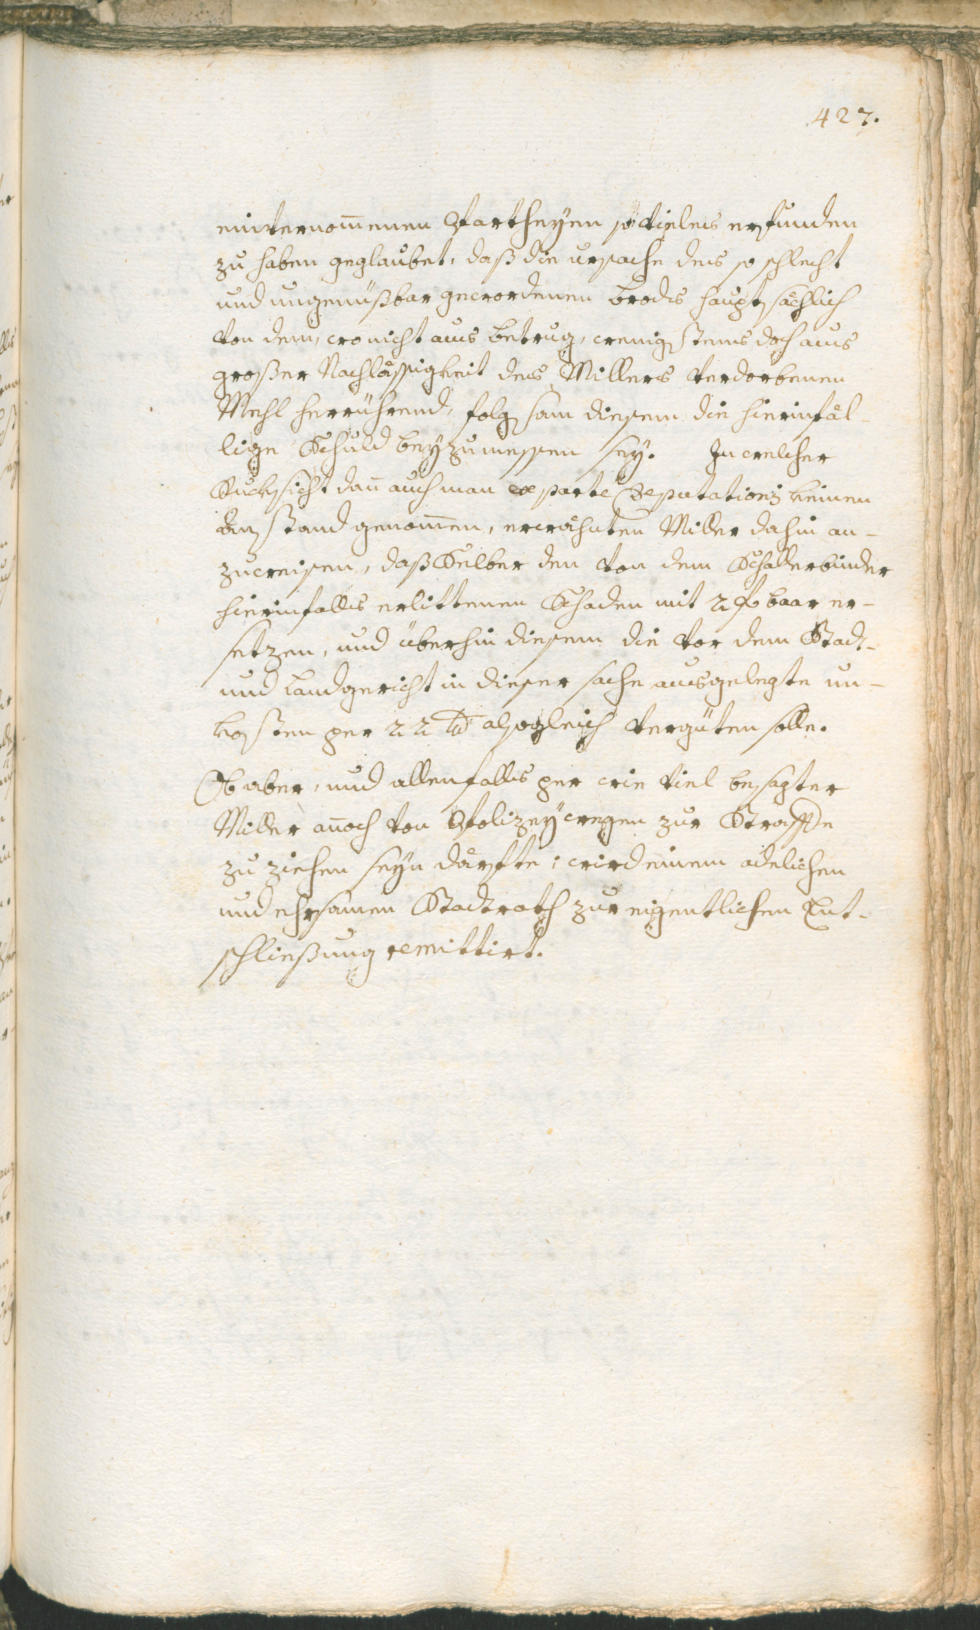 427.
einvernom̄enen Partheyen so vieles erfunden
zu haben geglaubet, daß die ursache des so schlecht
und ungenüßbar gewordenen brods hauptsächlich
von dem, wo nicht aus betrug, wenigstens doch aus
großer Nachlässigkeit des Millers verdorbenen
Mehl herrührend, folgsam diesem die hierinfäl-
lige Schuld beyzumessen sey. In welcher
Rucksicht dan̄ auch man ex parte Deputationis keinen
Anstand genom̄en, erwähnten Miller dahin an-
zuweisen, daß Selber den von dem Schallerbinder
hierinfalls erlittenen Schaden mit 2 f baar er-
setzen, und überhin diesem die vor dem Stadt-
und Landgericht in dieser sache ausgelegte un-
kosten per 22 alsogleich vergüten solle.
Ob aber, und allenfalls per wie viel besagter
Miller an̄och von Polizeÿ wegen zur Straffe
zu ziehen seyn därfte: wird einem adelichen
und ehrsamen Stadtrath zur eigentlichen Ent-
schließung remittirt.